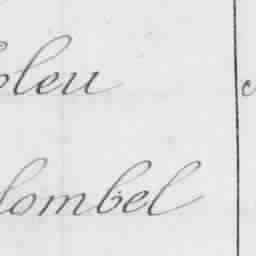 bleu
lombel